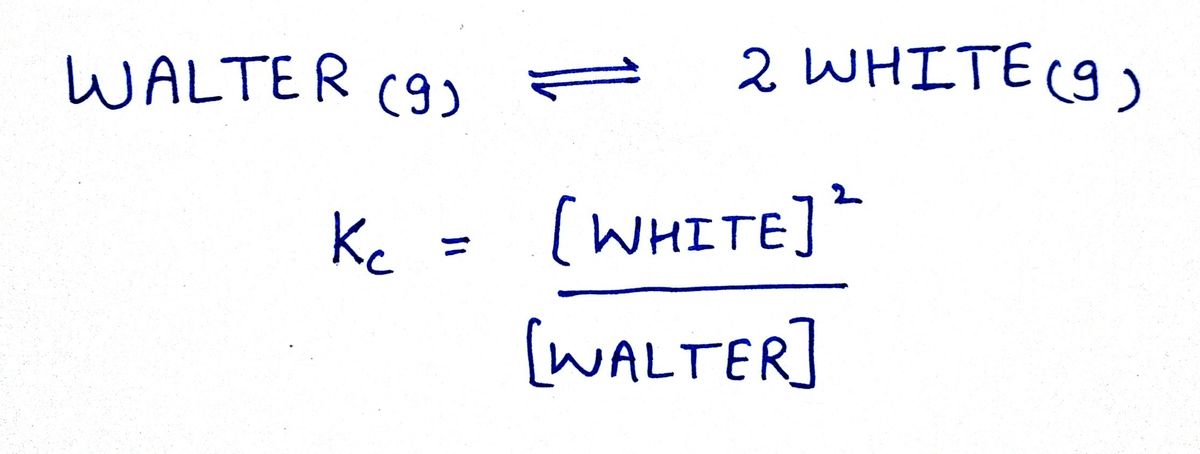 WALTER (g) ⇌ 2 WHITE (g)
Kc = [WHITE]²
[WALTER]